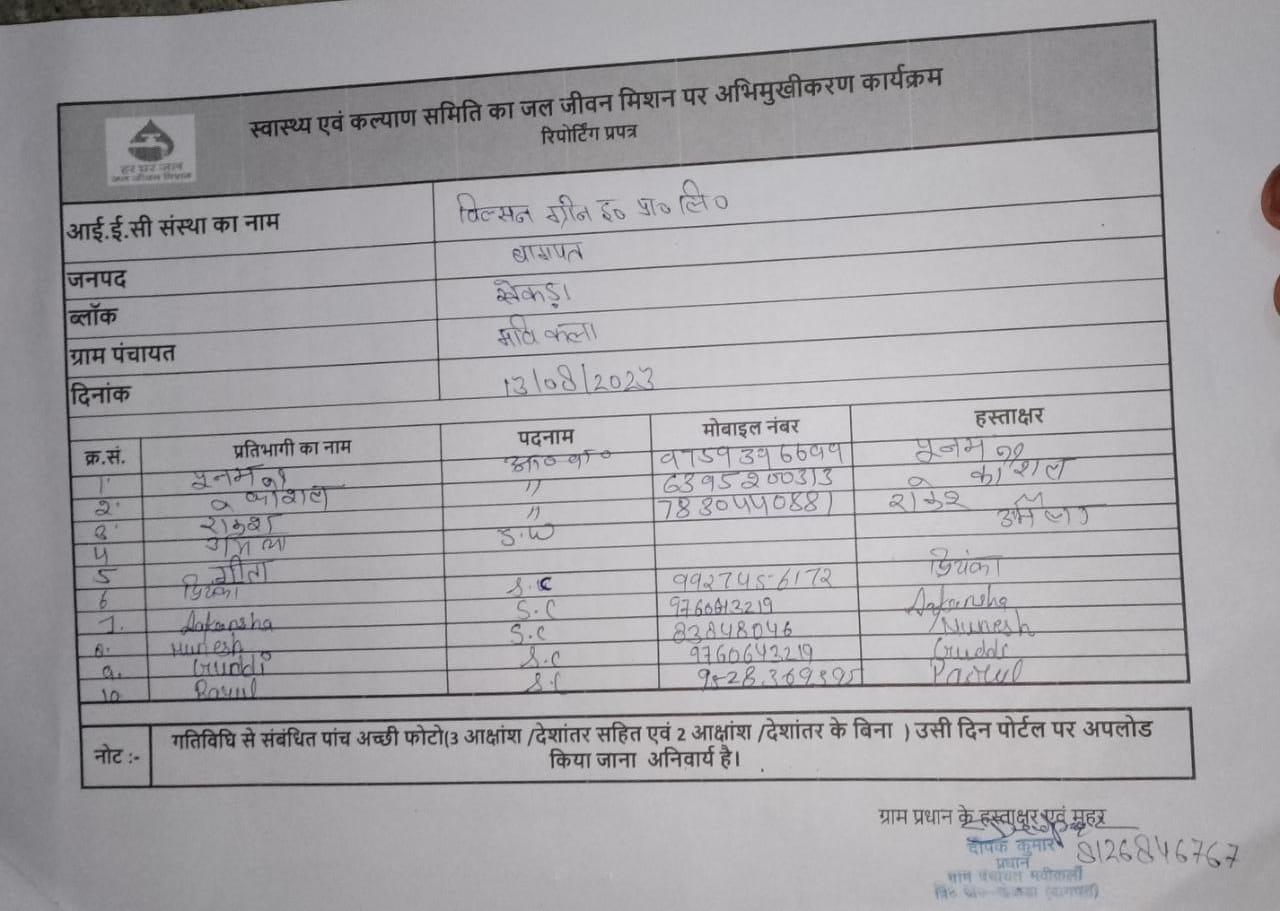 स्वास्थ्य एवं कल्याण समिति का जल जीवन मिशन पर अभिमुखीकरण कार्यक्रम
रिपोर्टिंग प्रपत्र
हर घर जल
जल जीवन मिशन
आई.ई.सी संस्था का नाम विल्सन ग्रीन इ० प्रा० लि०
जनपद बागपत
ब्लॉक खेकड़ा
ग्राम पंचायत मवि कला
दिनांक 13/08/2023
क्र.सं. प्रतिभागी का नाम पदनाम मोबाइल नंबर हस्ताक्षर
1. पूनम आ० का० 9759396699 पूनम
2. कौशल " 6395200313 कौशल
3. राकेश " 7830440881 राकेश
4 उर्मिला S.W उर्मिला
5 गीता
6 प्रियंका S.C 9927456172 प्रियंका
7. Aakansha S.C 9760613219 Aakansha
8. Munesh S.C 83848046 Munesh
9. Guddi S.C 9760643219 Guddi
10 Parul S.C Parul
नोट :- गतिविधि से संबंधित पांच अच्छी फोटो(3 आक्षांश /देशांतर सहित एवं 2 आक्षांश /देशांतर के बिना ) उसी दिन पोर्टल पर अपलोड
किया जाना अनिवार्य है।
ग्राम प्रधान के हस्ताक्षर एवं मुहर
दीपक कुमार 8126846767
प्रधान
ग्राम पंचायत मवीकलां